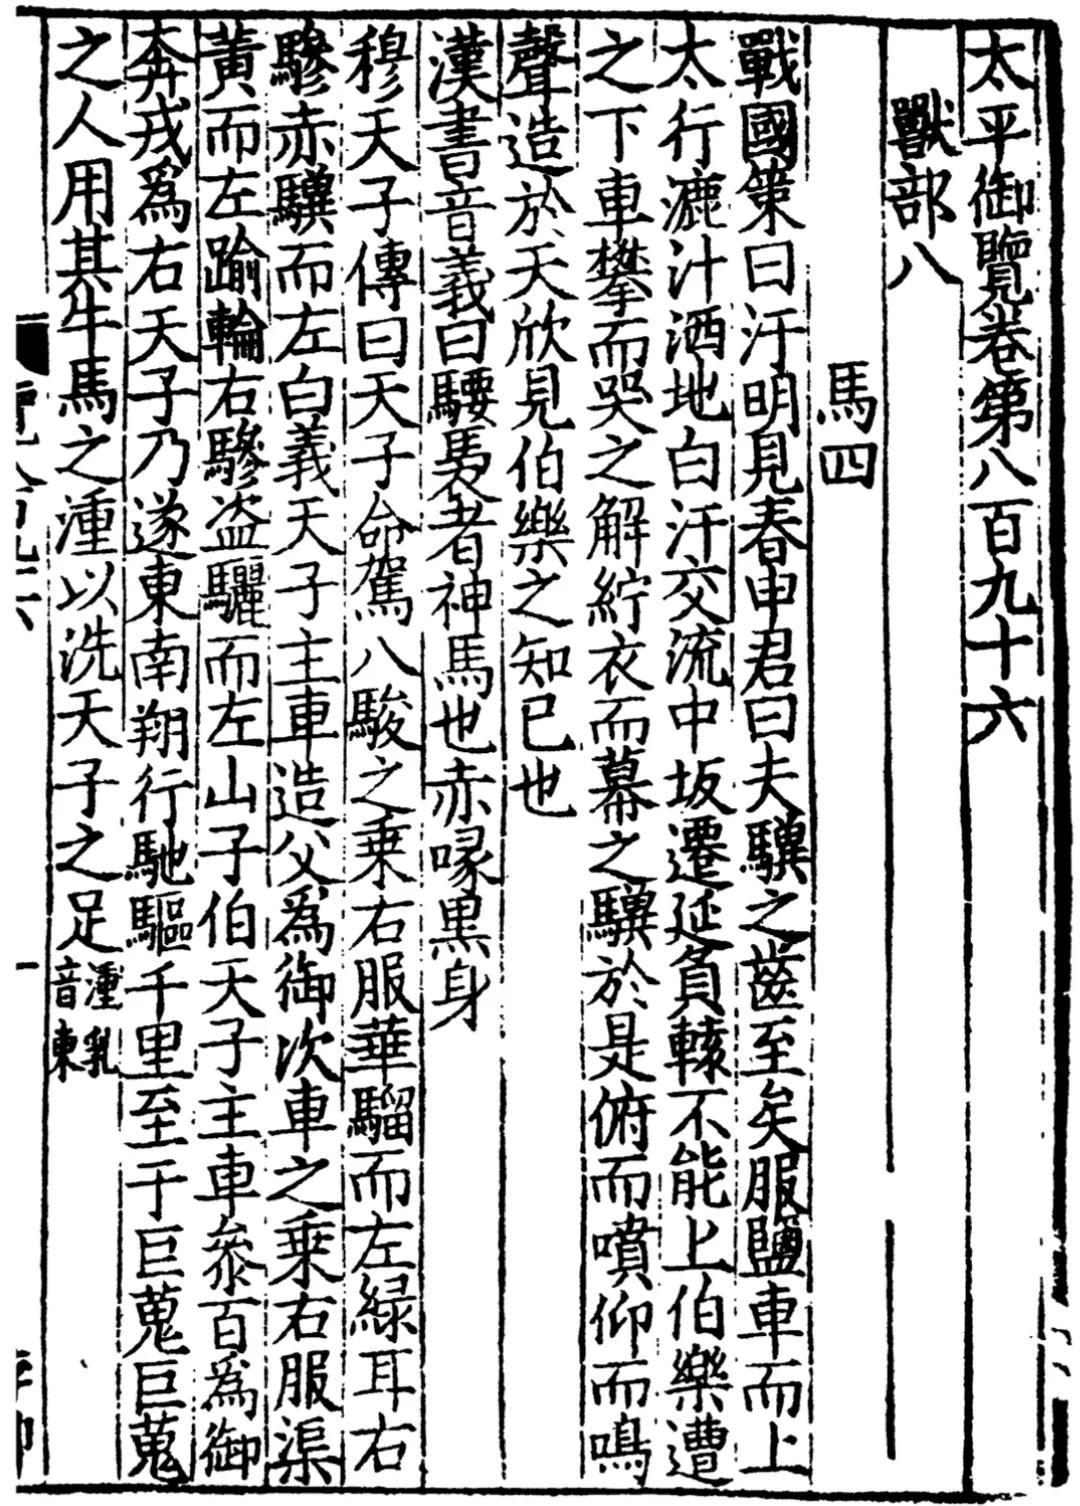 太平御覽卷第八百九十六
獸部八
馬四
戰國策曰汙明見春申君曰夫驥之齒至矣服鹽車而上
太行漉汁洒地白汗交流中坂遷延負轅不能上伯樂遭
之下車攀而哭之解紵衣而羃之驥於是俯而噴仰而鳴
聲造於天欣見伯樂之知已也
漢書音義曰騕褭者神馬也赤喙黒身
穆天子傳曰天子命駕八駿之乗右服華騮而左緑耳右
驂赤驥而左白義天子主車造父爲御次車之乗右服渠
黃而左踰輪右驂盗驪而左山子伯天子主車叅百爲御
奔戎爲右天子乃遂東南翔行馳驅千里至于巨蒐巨蒐
之人用其牛馬之湩以洗天子之足湩乳音東
一